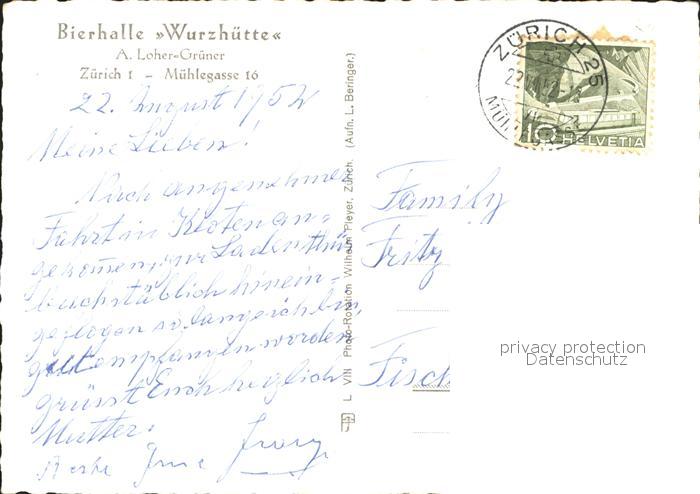 Bierhalle »Wurzhütte«
A. Loher-Grüner
Zürich 1 – Mühlegasse 16
22. August 1952
Meine Lieben!
Nach angenehmer
Fahrt in Kloten an-
gekommen, zur Ladenthür
buchstäblich hinein-
geflogen so lange ich bin,
gut empfangen worden
grüsst Euch herzlich
Mutter.
L. VIN Photo-Rotation Wilhelm Pleyer, Zürich. (Aufn. L. Beringer.)
ZÜRICH 25
10 HELVETIA
Family
Fritz
Fisch
privacy protection
Datenschutz